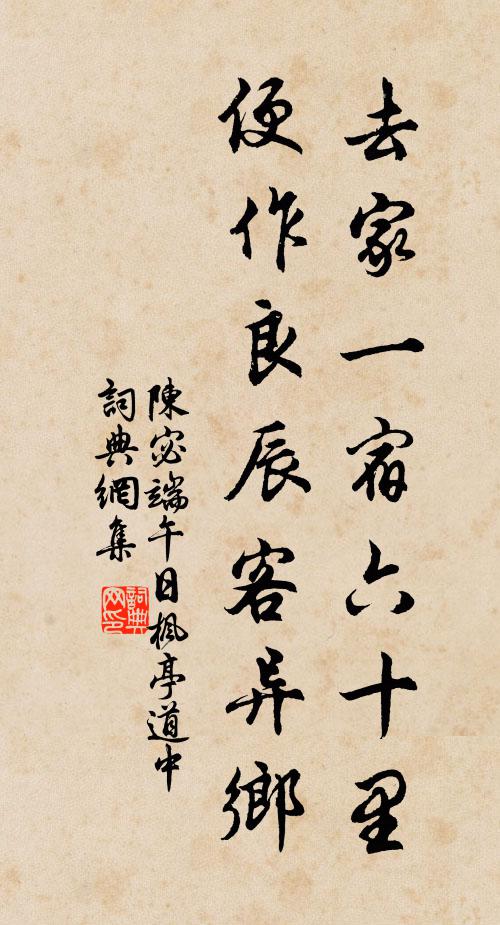 去家一宿六十里
便作良辰客异鄉
陳宓端午日楓亭道中
詞典網集
詞典网印